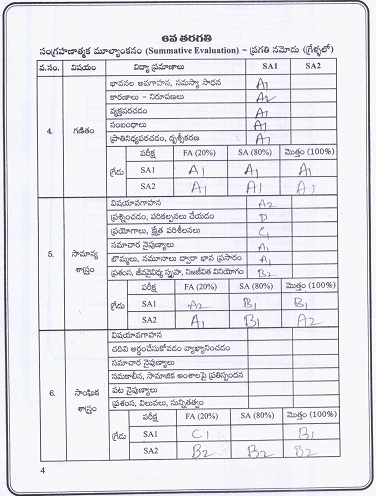 6వ తరగతి
సంగ్రహణాత్మక మూల్యాంకనం (Summative Evaluation) – ప్రగతి నమోదు (గ్రేళ్ళలో)
వ.సం. విషయం విద్యా ప్రమాణాలు SA1 SA2
భావనల అవగాహన, సమస్యా సాధన A1
కారణాలు – నిరూపణలు A2
వ్యక్తపరచడం A1
సంబంధాలు A1
ప్రాతినిధ్యపరచడం, దృశ్యీకరణ A1
4. గణితం
గ్రేడు పరీక్ష FA (20%) SA (80%) మొత్తం (100%)
SA1 A1 A1 A1
SA2 A1 A1 A1
విషయావగాహన A2
ప్రశ్నించడం, పరికల్పనలు చేయడం D
ప్రయోగాలు, క్షేత్ర పరిశీలనలు C1
సమాచార నైపుణ్యాలు A1
బొమ్మలు, నమూనాల ద్వారా భావ ప్రసారం A1
ప్రశంస, జీవవైవిధ్య స్పృహ, నిజజీవిత వినియోగం B2
5. సామాన్య శాస్త్రం
గ్రేడు పరీక్ష FA (20%) SA (80%) మొత్తం (100%)
SA1 A2 B1 B1
SA2 A1 B1 A2
విషయావగాహన
చదివి అర్థంచేసుకోవడం వ్యాఖ్యానించడం
సమాచార నైపుణ్యాలు
సమకాలీన, సామాజిక అంశాలపై ప్రతిస్పందన
పట నైపుణ్యాలు
ప్రశంస, విలువలు, సున్నితత్వం
6. సాంఘిక శాస్త్రం
గ్రేడు పరీక్ష FA (20%) SA (80%) మొత్తం (100%)
SA1 C1 B1
SA2 B2 B2 B2
4